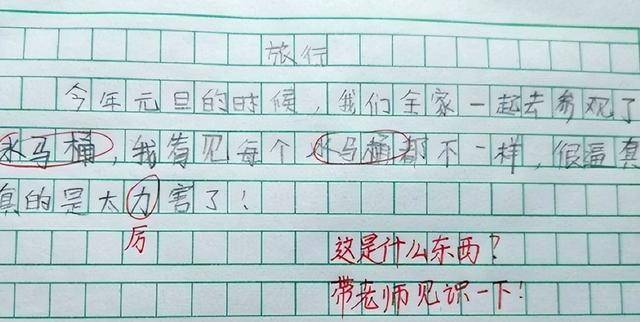 旅行
今年元旦的时候,我们全家一起去参观了
水马桶,我看见每个水马桶都不一样,很逼真
真的是太力害了!
厉
这是什么东西?
带老师见识一下!